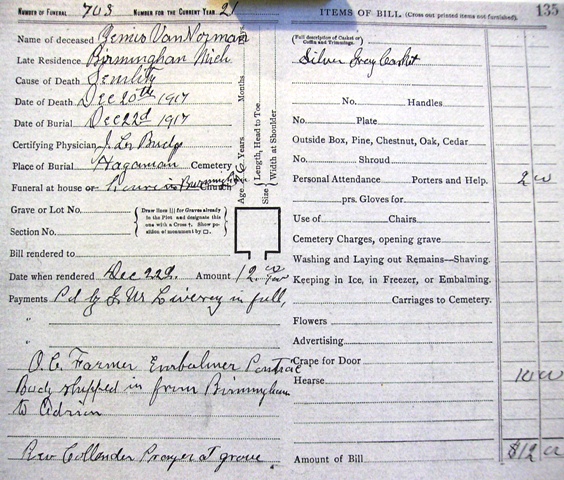 NUMBER OF FUNERAL 703 NUMBER FOR THE CURRENT YEAR 21
Name of deceased VanNorman
Late Residence Birminghan Mich
Cause of Death Senility
Date of Death Dec 20th 1917
Date of Burial Dec 22d 1917
Certifying Physician J.
Place of Burial Hagaman Cemetery
Funeral at house or Church
Grave or Lot No.
Section No.
Draw lines ||| for Graves already in the Plot and designate this one with a Cross †. Show position of monument by □.
Bill rendered to
Date when rendered Dec 22d. Amount 12.
Payments Pd by Liverey in full,
"
"
O.C. Farmer Embalmer Pontiac
Body shipped in from Birmingham
to Adrian
Rev Collander Prayer at grave
Age Years Months
Size Length, Head to Toe
Width at Shoulder
ITEMS OF BILL (Cross out printed items not furnished). 135
(Full description of Casket or Coffin and Trimmings.)
Silver Grey Casket
No. Handles
No. Plate
Outside Box, Pine, Chestnut, Oak, Cedar
No. Shroud
Personal Attendance Porters and Help. 2 00
prs. Gloves for
Use of Chairs
Cemetery Charges, opening grave
Washing and Laying out Remains—Shaving.
Keeping in Ice, in Freezer, or Embalming.
Carriages to Cemetery.
Flowers
Advertising
Crape for Door
Hearse 10 00
Amount of Bill $12 00